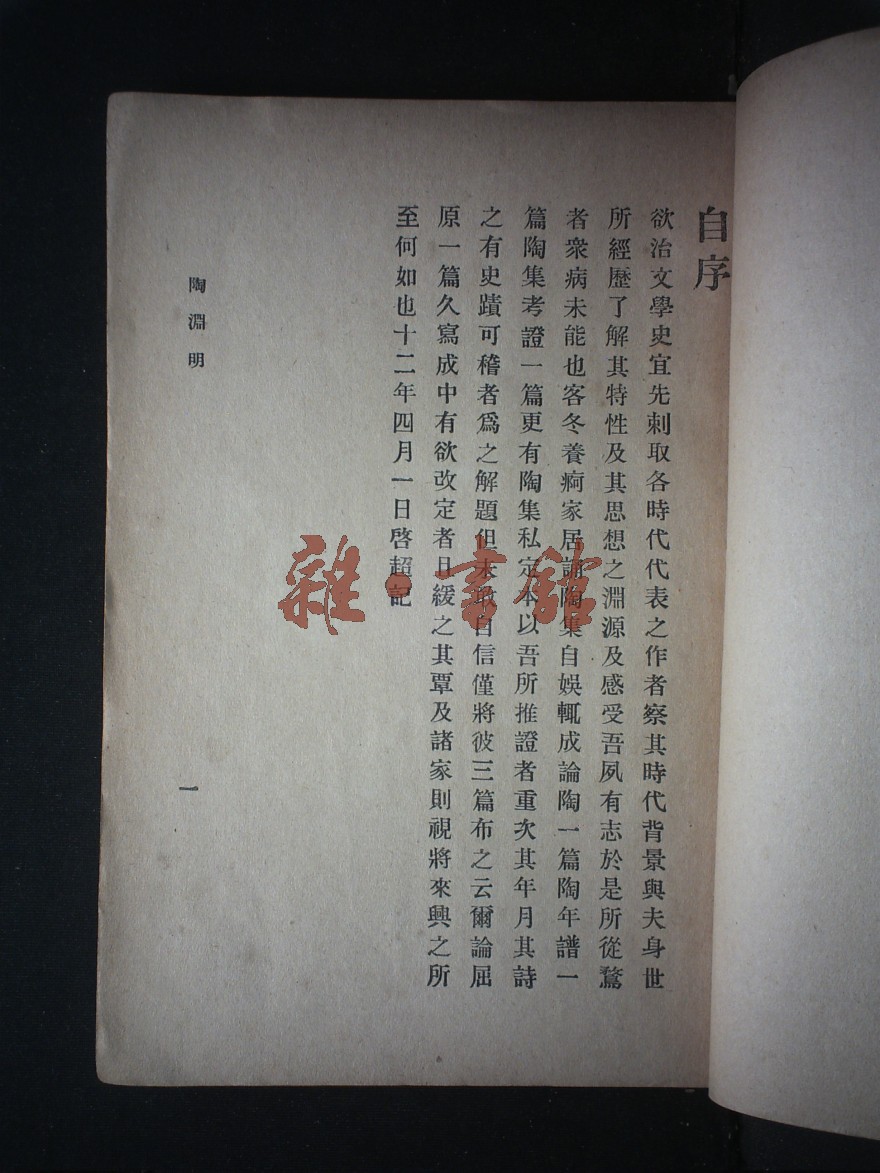 自序
欲治文學史宜先刺取各時代代表之作者察其時代背景與夫身世
所經歷了解其特性及其思想之淵源及感受吾夙有志於是所從鶩
者衆病未能也客冬養痾家居誦陶集自娛輒成論陶一篇陶年譜一
篇陶集考證一篇更有陶集私定本以吾所推證者重次其年月其詩
之有史蹟可稽者爲之解題但未敢自信僅將彼三篇布之云爾論屈
原一篇久寫成中有欲改定者且緩之其覃及諸家則視將來興之所
至何如也十二年四月一日啓超記
陶淵明
一
雜·書館